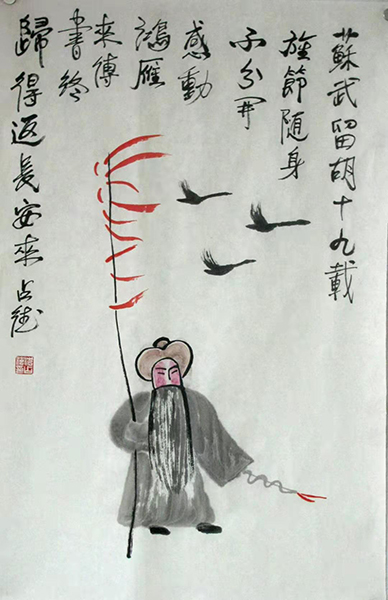 蘇武留胡十九載
旌節隨身
不分開
感動
鴻雁
來傳
書終
歸得返長安來占魁